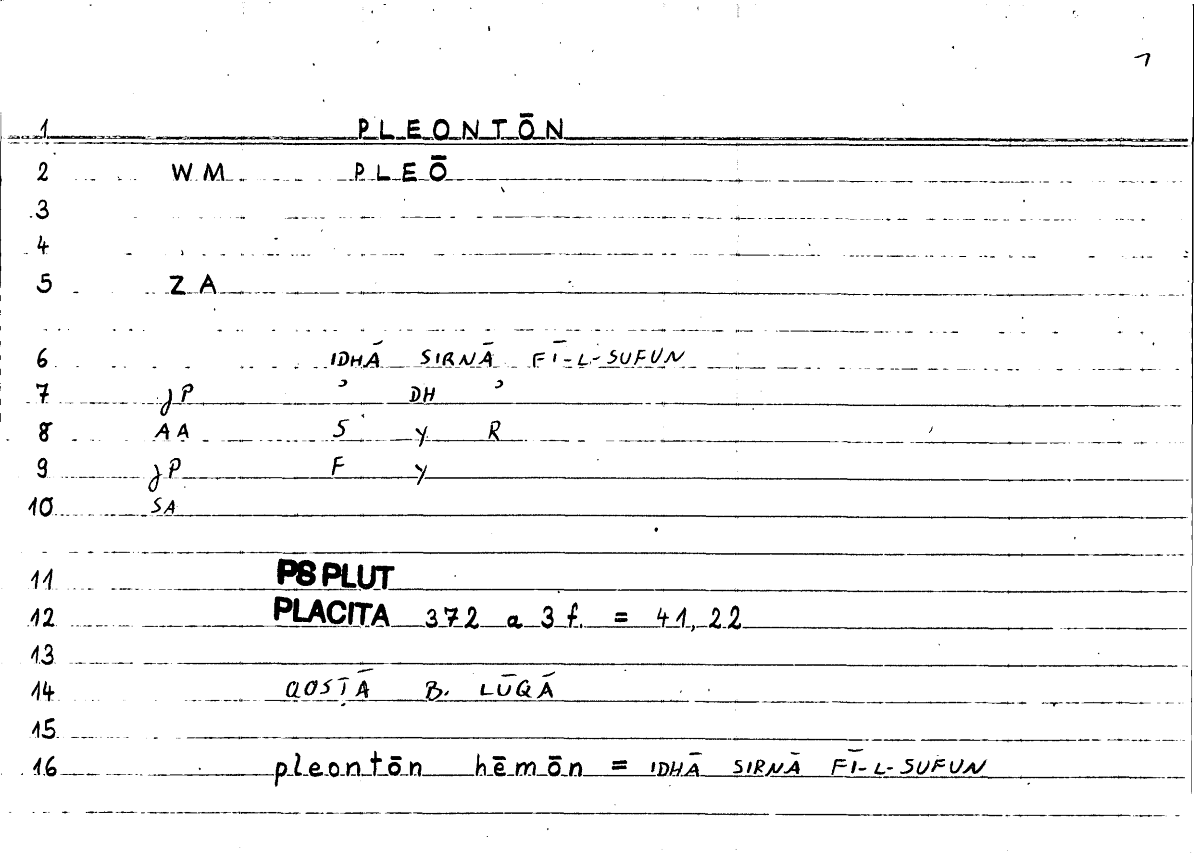 7
1 PLEONTŌN
2 WM PLEŌ
3
4
5 ZA
6 IDHĀ SIRNĀ FĪ-L-SUFUN
7 JP ʾ DH ʾ
8 AA S Y R
9 JP F Y
10 SA
11 PS PLUT
12 PLACITA 372 a 3 f. = 41, 22
13
14 QOSṬĀ B. LŪQĀ
15
16 pleontōn hēmōn = IDHĀ SIRNĀ FĪ-L-SUFUN